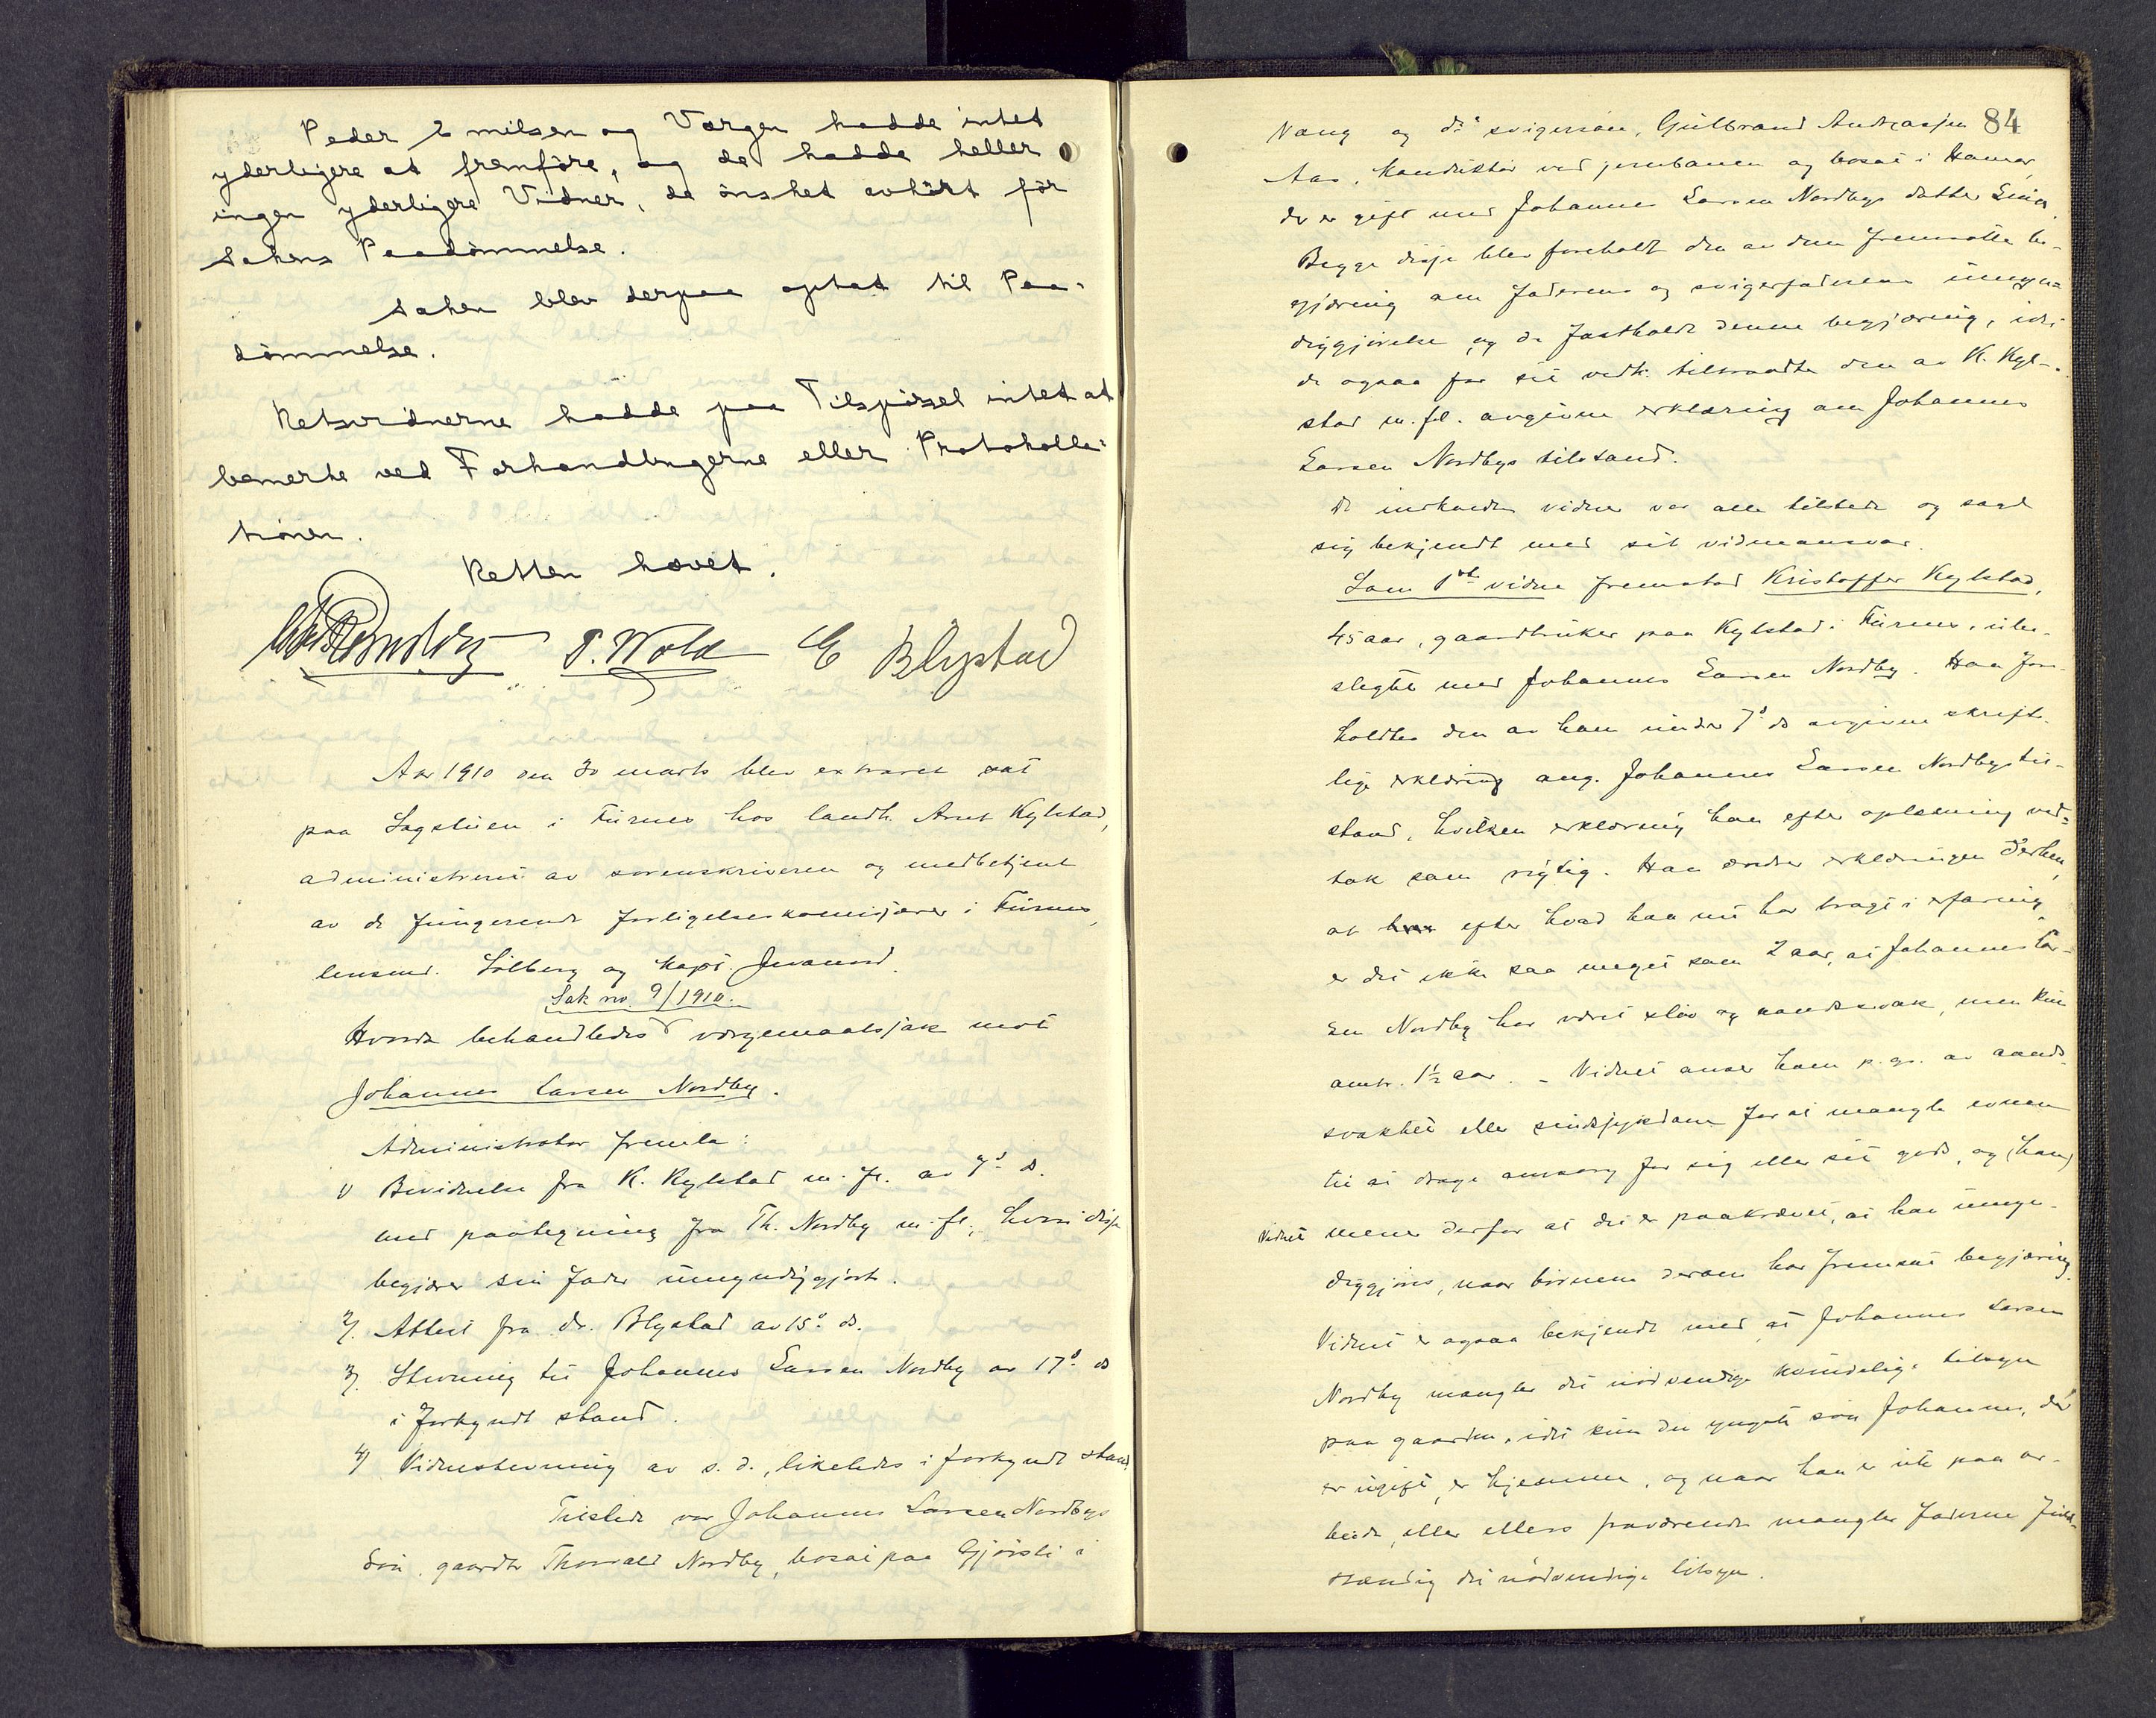 Peder Emilsen og Værgen hadde intet
yderligere at fremføre, og de hadde heller
ingen yderligere Vidner, de ønsket avhørt før
Sakens Paadømmelse.
Saken blev derpaa optat til Paa-
dømmelse.
Retsvidnerne hadde paa Tilspørsel intet at
bemerke ved Forhandlingerne eller Protokolla-
tionen.
Retten hævet.
P. Wold E Blystad
Aar 1910 den 30 marts blev extraret sat
paa Sagstuen i Furnes hos landh. Arnt Kylstad,
administreret av sorenskriveren og medbetjent
av de fungerende forligelseskommissærer i Furnes,
lensmd. Solberg og kapt.
Sak no. 9/1910.
Hvorda behandledes værgemaalssak mot
Johannes Larsen Nordby.
Administrator fremla:
1) Bevidnelse fra K. Kylstad m. fl. av 7de ds.
med paategning fra Th. Nordby m. fl., hvori disse
begjærer sin fader umyndiggjort.
2). Attest fra dr. Blystad av 15de ds.
3). Stevning til Johannes Larsen Nordby av 17de ds
i forkyndt stand.
4) Vidnestevning av s. d., likeledes i forkyndt stand
Tilstede var Johannes Larsen Nordbys
søn, gaardbr Thorvald Nordby, bosat paa Gjørsli i
84
Vang og ds svigersøn, Gulbrand Andreassen
Aas, konduktør ved jernbanen og bosat i Hamar,
der er gift med Johannes Larsen Nordbys datter
Begge disse blev foreholdt den av dem fremsatte be-
gjæring om faderens og svigerfaderens umyn-
diggjørelse og de fastholdt denne begjæring, idet
de ogsaa for sit vedk. tiltraadte den av K. Kyl-
stad m. fl. avgivne erklæring om Johannes
Larsen Nordbys tilstand.
De indkaldte vidner var alle tilstede og sagde
sig bekjendt med sit vidneansvar.
Som 1ste vidne fremstod Kristoffer Kylstad,
45 aar, gaardbruker paa Kylstad i Furnes, ube-
slegtet med Johannes Larsen Nordby. Han fore-
holdtes den av ham under 7de ds avgivne skrift-
lige erklæring ang. Johannes Larsen Nordbys til-
stand, hvilken erklæring han efter oplæsning ved-
tok som rigtig. Han ændrer erklæringen derhen,
at efter hvad han nu har bragt i erfaring,
er det ikke saa meget som 2 aar, at Johannes Lar-
sen Nordby har været sløv og aandssvak, men kun
omtr. 1½ aar. - Vidnet anser ham p. gr. av aands-
svakhet eller sindssygdom for at mangle evnen
til at drage omsorg for sig eller sit gods, og (han)
Vidnet mener derfor at det er paakrævet, at han umyn-
diggjøres, naar børnene derom har fremsat begjæring.
Vidnet er ogsaa bekjendt med, at Johannes Larsen
Nordby mangler det nødvendige kvindelige tilsyn
paa gaarden, idet kun den yngste søn Johannes, der
er ugift, er hjemme, og naar han er ute paa ar-
beide, eller ellers fraværende mangler faderen fuld-
stændig det nødvendige tilsyn.